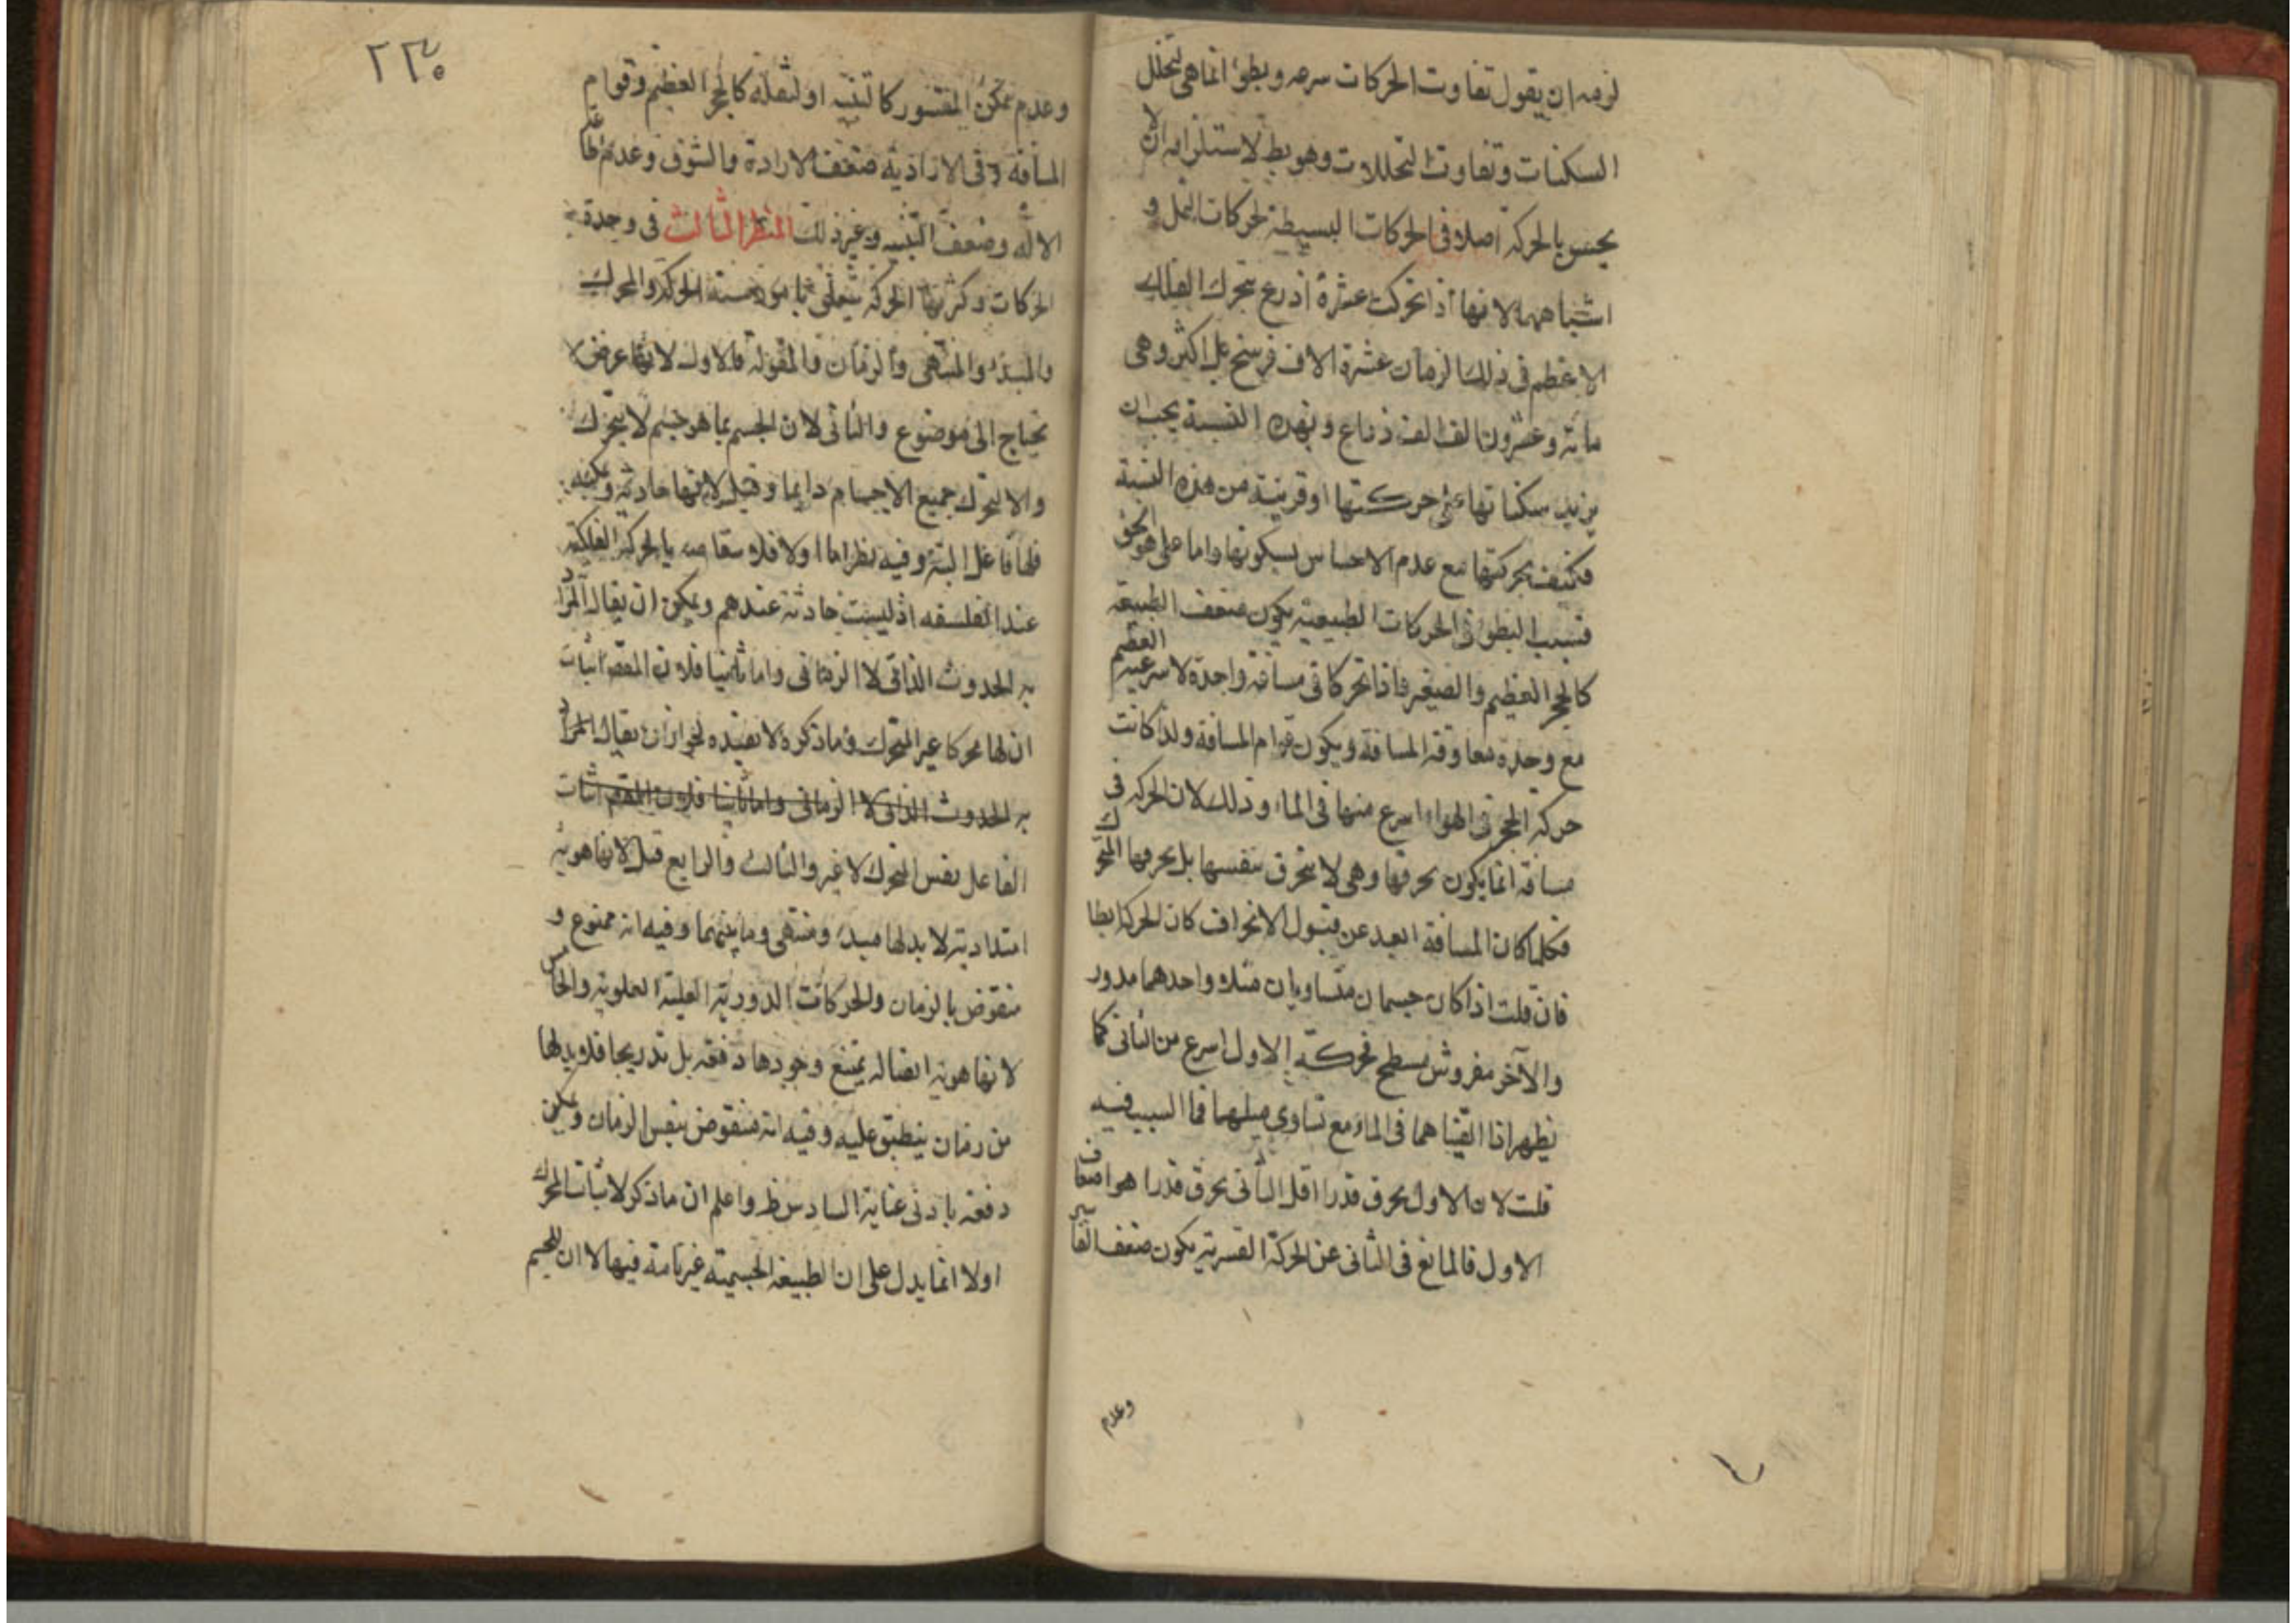 لزمه ان يقول تفاوت الحركات سرعه وبطؤا انما هى لتخلل
السكنات وتفاوت التخللات وهو بط لاستلزامه ان لا
يحس بالحركة اصلا فى الحركات البسيطة لحركات النمل و
اشباههما لانها اذا تحركت عشرة اذرع تحرك الفلك
الاعظم فى ذلك الزمان عشرة الاف فرسخ بل اكثر وهى
مائة وعشرون الف الف ذراع وبهذه النسبة يجب ان
يزيد سكناتها على حركتها او قريبة من هذه النسبة
فكيف بحركتها مع عدم الاحساس بسكونها واما على هو الحق
فسبب البطؤ فى الحركات الطبيعية يكون ضعف الطبيعة
كالحجر العظيم والصغير فاذا تحركا فى مسافة واحدة لاسرعية العظيم
مع وحدة معاوقة المسافة ويكون قوام المسافة ولذا كانت
حركة الحجر فى الهواء اسرع منها فى الماء وذلك لان الحركة فى
مسافة انما يكون بخرقها وهى لا ينخرق بنفسها بل يخرقها المتحرك
فكلما كان المسافة ابعد عن قبول الانخراق كان الحركة ابطا
فان قلت اذا كان جسمان متساويان مثلا واحدهما مدور
والآخر مفروش بسطح فحركة الاول اسرع من الثانى كما
يظهر اذا القيناهما فى الماء مع تساوى ميلهما فما السبب فيه
قلت لان الاول يخرق قدرا اقل الثانى يخرق قدرا هو اضعاف
الاول فالمانع فى الثانى عن الحركة القسرية يكون ضعف القاسر
وعدم
٢٣٥
وعدم تمكن المقسور كا او لثقله كالحجر العظيم وقوام
المسافة وفى الارادية ضعف الارادة والشوق وعدم
الآلة وضعف البنية وغير ذلك المنظر الثالث فى وحدة
الحركات وكثرتها الحركة يتعلق بامور ستة الحركة والمحرك
والمبدء والمنتهى والزمان والمقولة فالاول لانها عرض لا
يحتاج الى موضوع والثانى لان الجسم بما هو جسم لا يتحرك
والا لتحرك جميع الاجسام دايما وقيل لانها حادثة وممكنه
فلها فاعل البتة وفيه نظر اما اولا فلا بالحركة الفلكية
عند الفلسفه اذ ليست حادثة عندهم ويمكن ان يقال المراد
به الحدوث الذاتى لا الزمانى واما ثانيا فلان المقص اثبات
ان لها محركا غير المتحرك وما ذكره لا يفيده لجواز ان يقال المراد
به الحدوث الذاتى لا الزمانى واما ثانيا فلان المقصم اثبات
الفاعل نفس المتحرك لا غير والثالث والرابع قيل لانها هوية
امتدادية لا بد لها مبدء ومنتهى وما بينهما وفيه انه ممنوع و
منقوض بالزمان والحركات الدورية العلية العلوية والخامس
لانها هوية اتصاله يمتنع وجودها دفعة بل تدريجا فلا بد لها
من زمان ينطبق عليه وفيه انه منقوض بنفس الزمان ويمكن
دفعه بادنى عناية السادس ظ واعلم ان ما ذكر لاثبات المحرك
اولا انما يدل على ان الطبيعة الجسمية غير تامة فيها لا ان للجسم